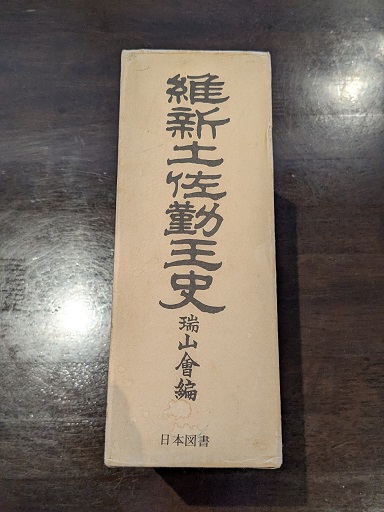 維新土佐勤王史
瑞山會編
日本図書